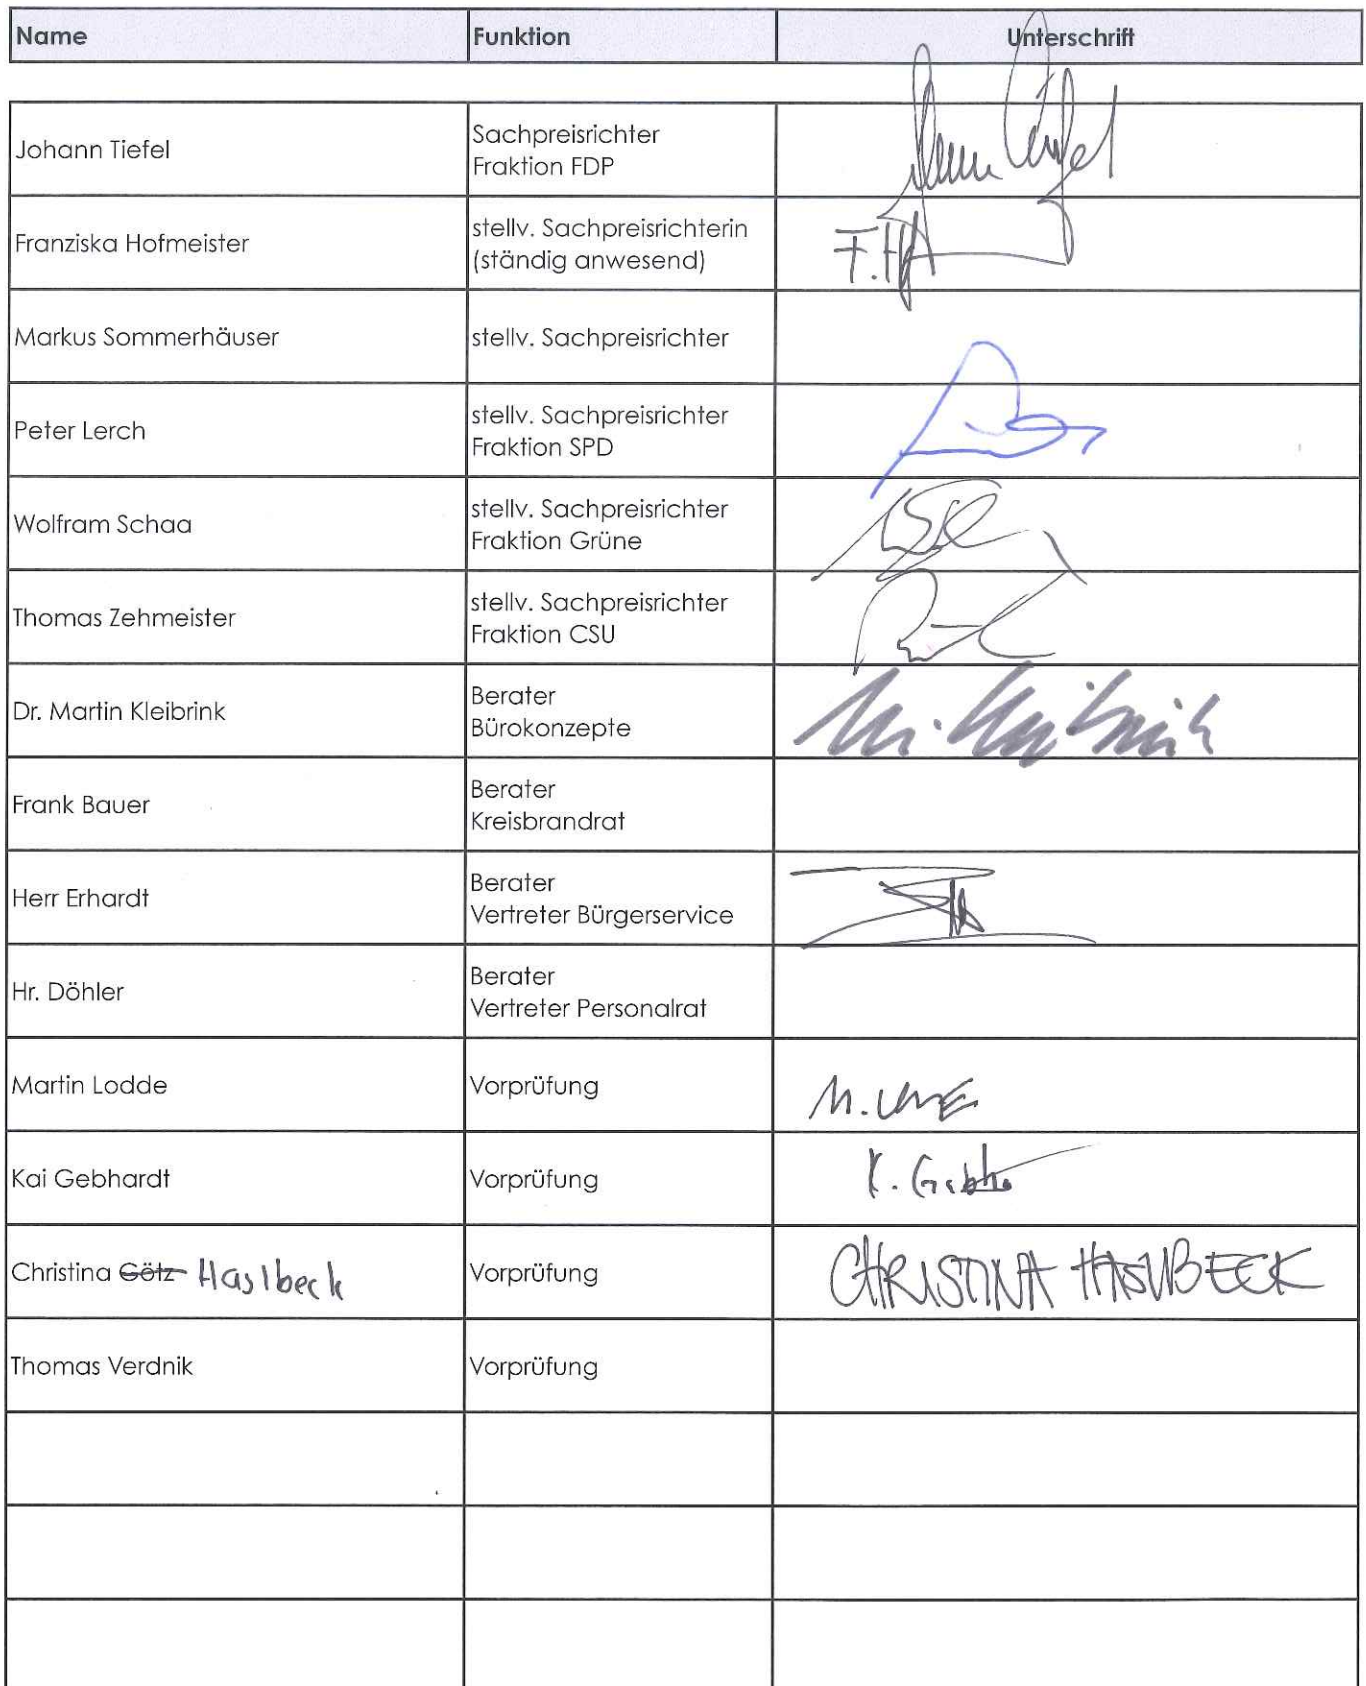 Name Funktion Unterschrift
Johann Tiefel Sachpreisrichter
Fraktion FDP
Franziska Hofmeister stellv. Sachpreisrichterin
(ständig anwesend)
Markus Sommerhäuser stellv. Sachpreisrichter
Peter Lerch stellv. Sachpreisrichter
Fraktion SPD
Wolfram Schaa stellv. Sachpreisrichter
Fraktion Grüne
Thomas Zehmeister stellv. Sachpreisrichter
Fraktion CSU
Dr. Martin Kleibrink Berater
Bürokonzepte M. Kleibrink
Frank Bauer Berater
Kreisbrandrat
Herr Erhardt Berater
Vertreter Bürgerservice
Hr. Döhler Berater
Vertreter Personalrat
Martin Lodde Vorprüfung
Kai Gebhardt Vorprüfung
Christina Götz Haslbeck Vorprüfung CHRISTINA HASLBECK
Thomas Verdnik Vorprüfung